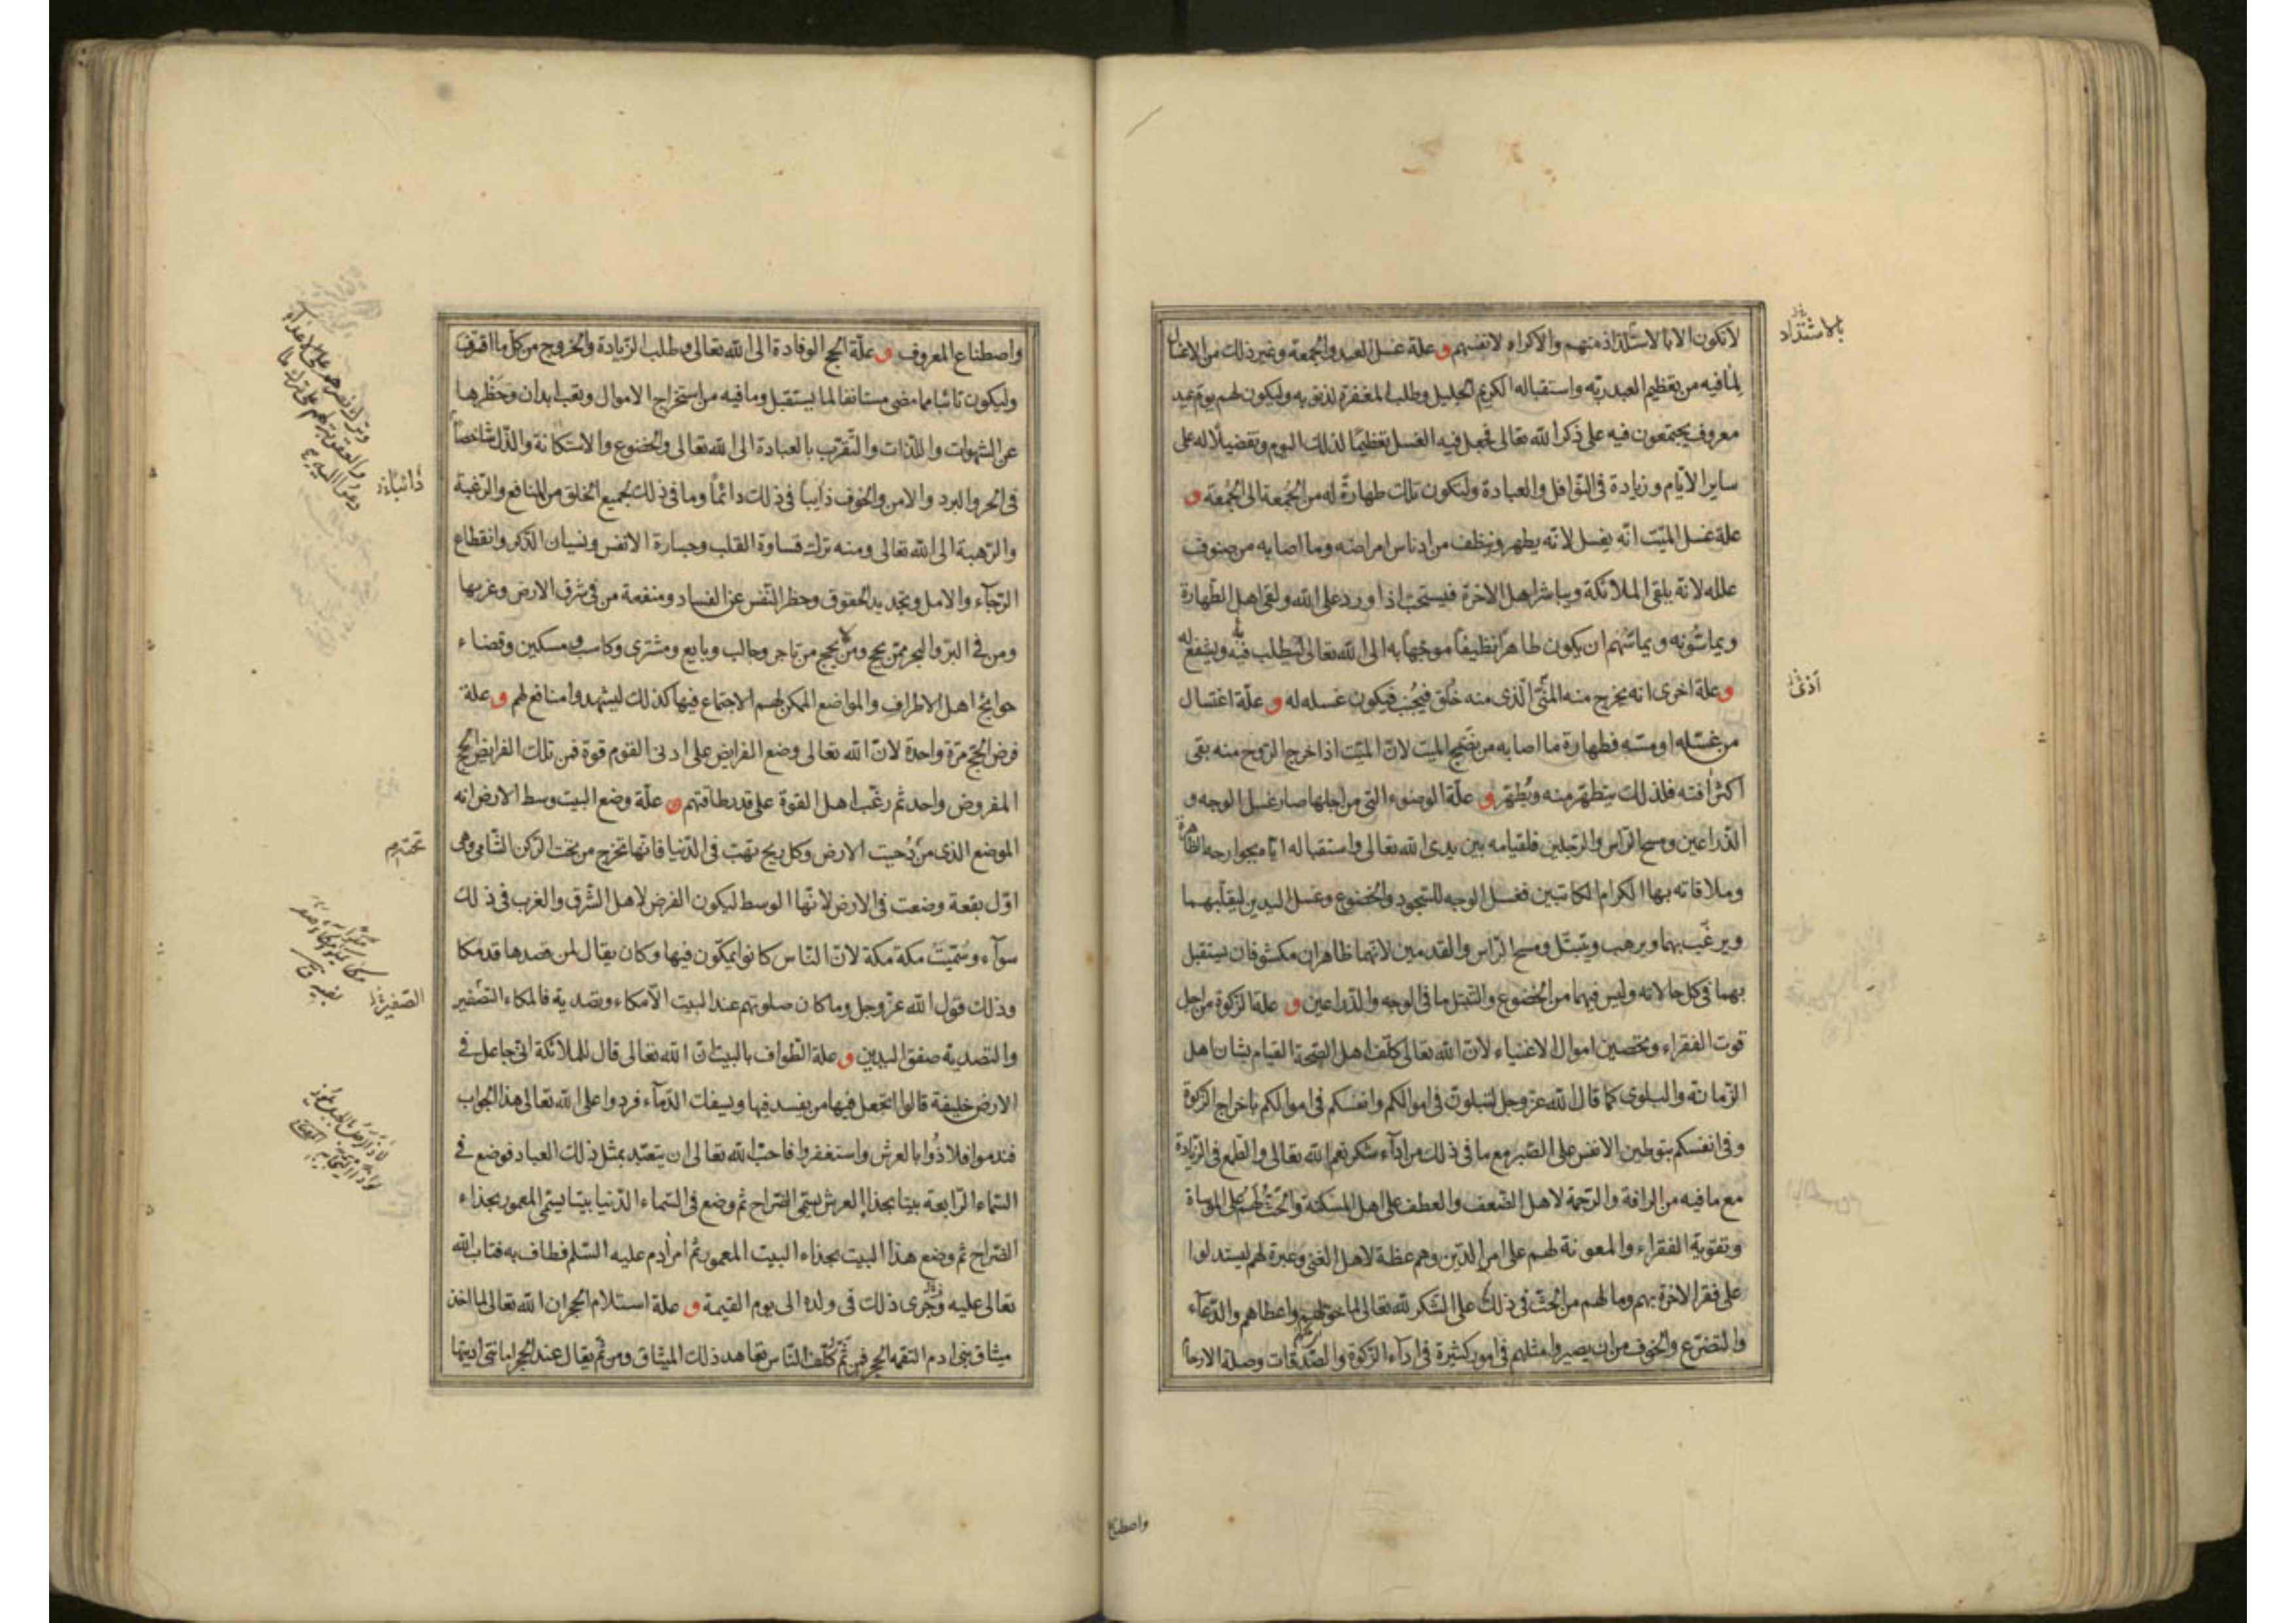 لا تكون الا بالاستلذاذ منهم والاكراه لانفسهم و علة غسل العيد والجمعة وغير ذلك من الاغسال
لما فيه من تعظيم العبد ربّه واستقباله الكريم الجليل وطلب المغفرة لذنوبه وليكون لهم يوم عيد
معروف يجتمعون فيه على ذكر الله تعالى فجعل فيه الغسل تعظيمًا لذلك اليوم وتفضيلًا له على
ساير الايّام وزيادة فى النّوافل والعبادة ولتكون تلك طهارةً له من الجُمعة الى الجُمعة و
علة غسل الميّت انّه يغسل لانّه يطهر وينظف من ادناس امراضه وما اصابه من صنوف
علله لانّه يلقى الملائكة ويباشر اهل الاخرة فيستحبّ اذا ورد على الله ولقى اهل الطّهارة
ويماسّونه ويماسّهم ان يكون طاهرًا نظيفًا موجّهًا به الى الله تعالى ليطلب به ويشفع له
و علة اخرى انه يخرج منه المنّى الّذى منه خُلق فيُجنب فيكون غسله له و علّة اغتسال
من غسّله او مسّه فطهارة ما اصابه من نضح الميت لانّ الميّت اذا خرج الرّوح منه بقى
اكثر افته فلذلك يتطهّر منه ويُطهّر و علّة الوضوء التى من اجلها صار غسل الوجه و
الذّراعين ومسح الرّاس والرّجلين فلقيامه بين يدى الله تعالى واستقباله ايّاه بجوارحه الظاهرة
وملاقاته بها الكرام الكاتبين فغسل الوجه للسّجود والخضوع وغسل اليدين ليقلّبهما
ويرغّب بهما ويرهب ويتبتّل ومسح الرّاس والقدمين لانّهما ظاهران مكشوفان يستقبل
بهما فى كل حالاته وليس فيهما من الخضوع والتّبتّل ما فى الوجه والذّراعين و علة الزّكوة من اجل
قوت الفقراء وتحصين اموال الاغنياء لانّ الله تعالى كلّف اهل الصّحة القيام بشان اهل
الزّمانة والبلوى كما قال الله عزّ وجل لتبلونّ فى اموالكم وانفسكم فى اموالكم باخراج الزّكوة
وفى انفسكم بتوطين الانفس على الصّبر مع ما فى ذلك من اداء شكر نعم الله تعالى والطمع فى الزّيادة
مع ما فيه من الرافة والرّحمة لاهل الضّعف والعطف على اهل المسكنة والحثّ لهم على المواساة
وتقوية الفقراء والمعونة لهم على امر الدّين وهم عظة لاهل الغنى وعبرة لهم ليستدلوا
على فقر الاخرة بهم وما لهم من الحثّ فى ذلك على الشّكر لله تعالى لما خولهم واعطاهم والدّعآء
والتضرّع والخوف من ان يصيروا مثلهم فى امور كثيرة فى اداء الزّكوة والصّدقات وصلة الارحام
بالاشتداد
أذى
واصطناع
واصطناع المعروف و علّة الحج الوفادة الى الله تعالى وطلب الزّيادة والخروج من كل ما اقترف
وليكون تائبا مما مضى مستانفا لما يستقبل وما فيه من استخراج الاموال وتعب ابدان وحظرها
عن الشهوات واللذّات والتّقرّب بالعبادة الى الله تعالى والخضوع والاستكانة والذّل شاخصًا
فى الحر والبرد والامن والخوف ذايبًا فى ذلك دائمًا وما فى ذلك لجميع الخلق من المنافع والرّغبة
والرّهبة الى الله تعالى ومنه ترك قساوة القلب وجسارة الانفس ونسيان الذّكر وانقطاع
الرّجآء والامل وتجديد الحقوق وحظر النّفس عن الفساد ومنفعة من فى شرق الارض وغربها
ومن فى البرّ والبحر ممّن يحج وممّن لا يحج من تاجر وجالب وبايع ومشترى وكاسب ومسكين وقضاء
حوايج اهل الاطراف والمواضع الممكن لهم الاجتماع فيها كذلك ليشهدوا منافع لهم و علة
فرض الحجّ مرّة واحدة لانّ الله تعالى وضع الفرايض على ادنى القوم قوة فمن تلك الفرايض الحج
المفروض واحد ثم رغّب اهل القوة على قدر طاقتهم و علّة وضع البيت وسط الارض انه
الموضع الذى من دُحيت الارض وكل ريح تهبّ فى الدّنيا فانّها تخرج من تحت الرّكن الشّامى وهى
اوّل بقعة وضعت فى الارض لانّها الوسط ليكون الفرض لاهل الشّرق والغرب فى ذلك
سوآء وسُمّيت مكة مكة لانّ النّاس كانوا يمكّون فيها وكان يقال لمن قصدها قد مكا
وذلك قول الله عزّ وجل وما كان صلوتهم عند البيت الّا مكاء وتصدية فالمكاء التّصفير
والتصدية صفق اليدين و علة الطّواف بالبيت انّ الله تعالى قال للملائكة انّى جاعل فى
الارض خليفة قالوا اتجعل فيها من يفسد فيها ويسفك الدّمآء فردوا على الله تعالى هذا الجواب
فندموا فلاذُوا بالعرش واستغفروا فاحبّ الله تعالى ان يتعبّد بمثل ذلك العباد فوضع فى
السّماء الرّابعة بيتا بحذاء العرش يسمّى الضّراح ثم وضع فى السّماء الدّنيا بيتا يسمّى المعمور بحذاء
الضّراح ثم وضع هذا البيت بحذاء البيت المعمور ثم امر ادم عليه السّلم فطاف به فتاب الله
تعالى عليه وجرى ذلك فى ولده الى يوم القيمة و علة استلام الحجر ان الله تعالى لما اخذ
ميثاق بنى ادم التقمه الحجر فمن ثَمّ كُلّف النّاس تعاهد ذلك الميثاق ومن ثم يقال عند الحجر امانتى اديتها
دائبا
تحته
الصّفير